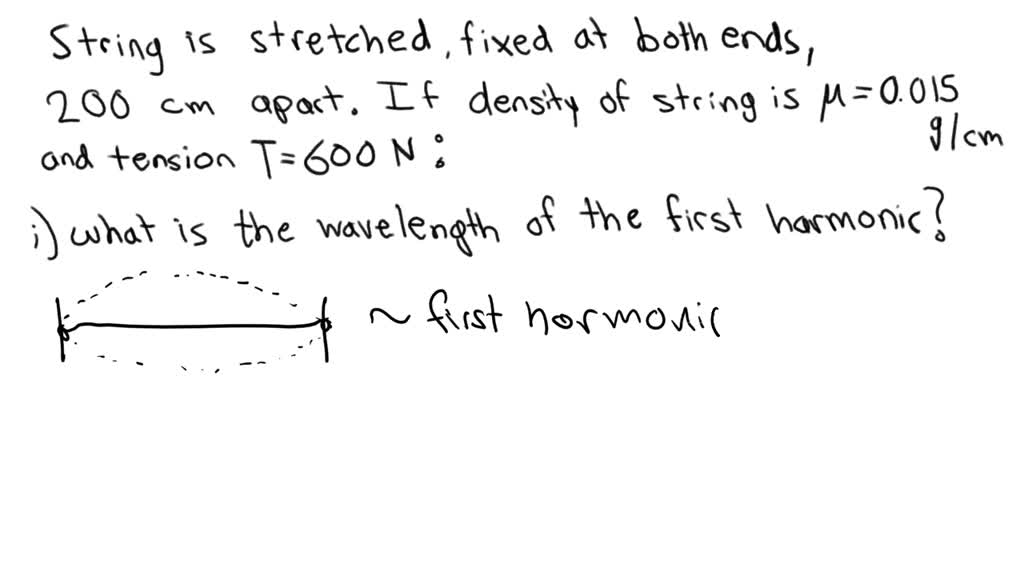 String is stretched, fixed at both ends,
200 cm apart. If density of string is μ = 0.015
g/cm
and tension T = 600 N :
i) what is the wavelength of the first harmonic?
~ first hormonic